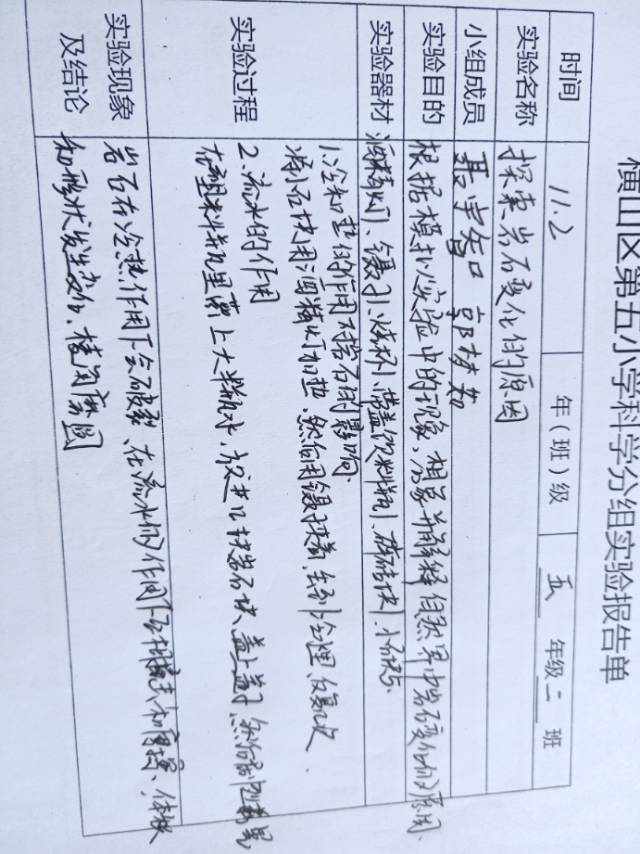 横山区第五小学科学分组实验报告单
时间 11.2 年(班)级 五 年级 二 班
实验名称 探索岩石变化的原因
小组成员 聂宇智 郭梦知
实验目的 根据模拟实验中的现象,想象并解释自然界岩石变化的原因.
实验器材 酒精灯、镊子、烧杯、带盖饮料瓶、砖块、小石
实验过程
1.冷和热的作用对岩石的影响.
将小石块用酒精灯加热,然后用镊子夹着,去到冷
2.流水的作用
在塑料瓶里灌上大半瓶水,放进几块岩石块、盖上盖子,然后
实验现象及结论
岩石在冷热作用下会破裂、在流水的作用下石块撞击和摩擦、体积
和形状发生变化,棱角磨圆